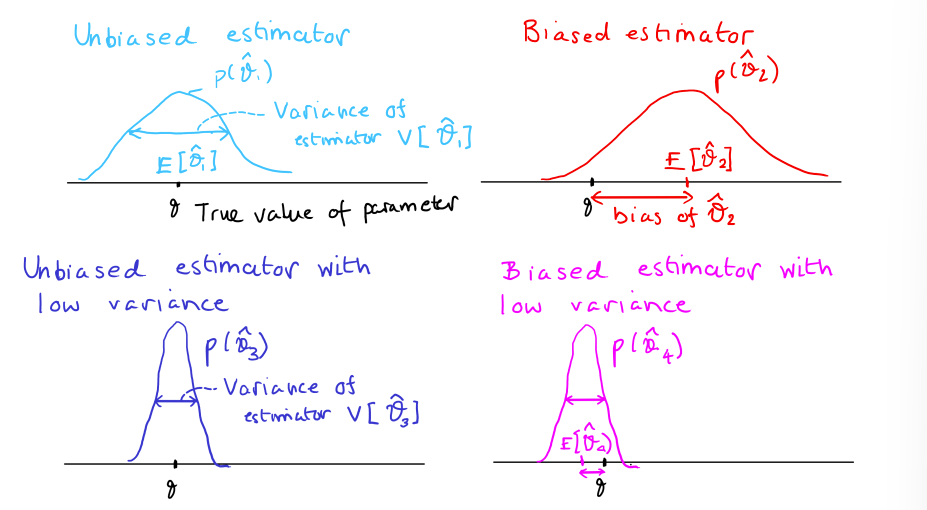 Unbiased estimator
p(ϑ̂₁)
Variance of
estimator V[ϑ̂₁]
E[ϑ̂₁]
ϑ True value of parameter
Biased estimator
p(ϑ̂₂)
E[ϑ̂₂]
ϑ
bias of ϑ̂₂
Unbiased estimator with
low variance
p(ϑ̂₃)
Variance of
estimator V[ϑ̂₃]
ϑ
Biased estimator with
low variance
p(ϑ̂₄)
E[ϑ̂₄)
ϑ